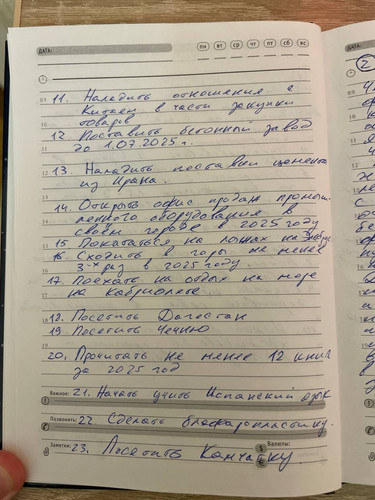 ДАТА: пн вт ср чт пт сб вс
09 11. Наладить отношения с
Китаем в части закупки
10 товаров
12 Поставить бетонный завод
11 до 1.07.2025 г.
12 13. Наладить поставки цемента
13 из Ирана.
14 14. Открыть офис продаж промыш
ленного оборудования в
15 своём городе в 2025 году
15 Покататься на лыжах на Эльбрус
16 16. Сходить в горы не менее
3-х раз в 2025 году.
17 17. Поехать на отдых на море
на кабриолете
18 18. Посетить Дагестан
19 Посетить Чечню
19
20 20. Прочитать не менее 12 книг
за 2025 год
Важное: 21. Начать учить Испанский язык
Позвонить: 22. Сделать блефаропластику.
Заметки: 23. Посетить Камчатку. Валюты:
$
€
ДАТА:
2